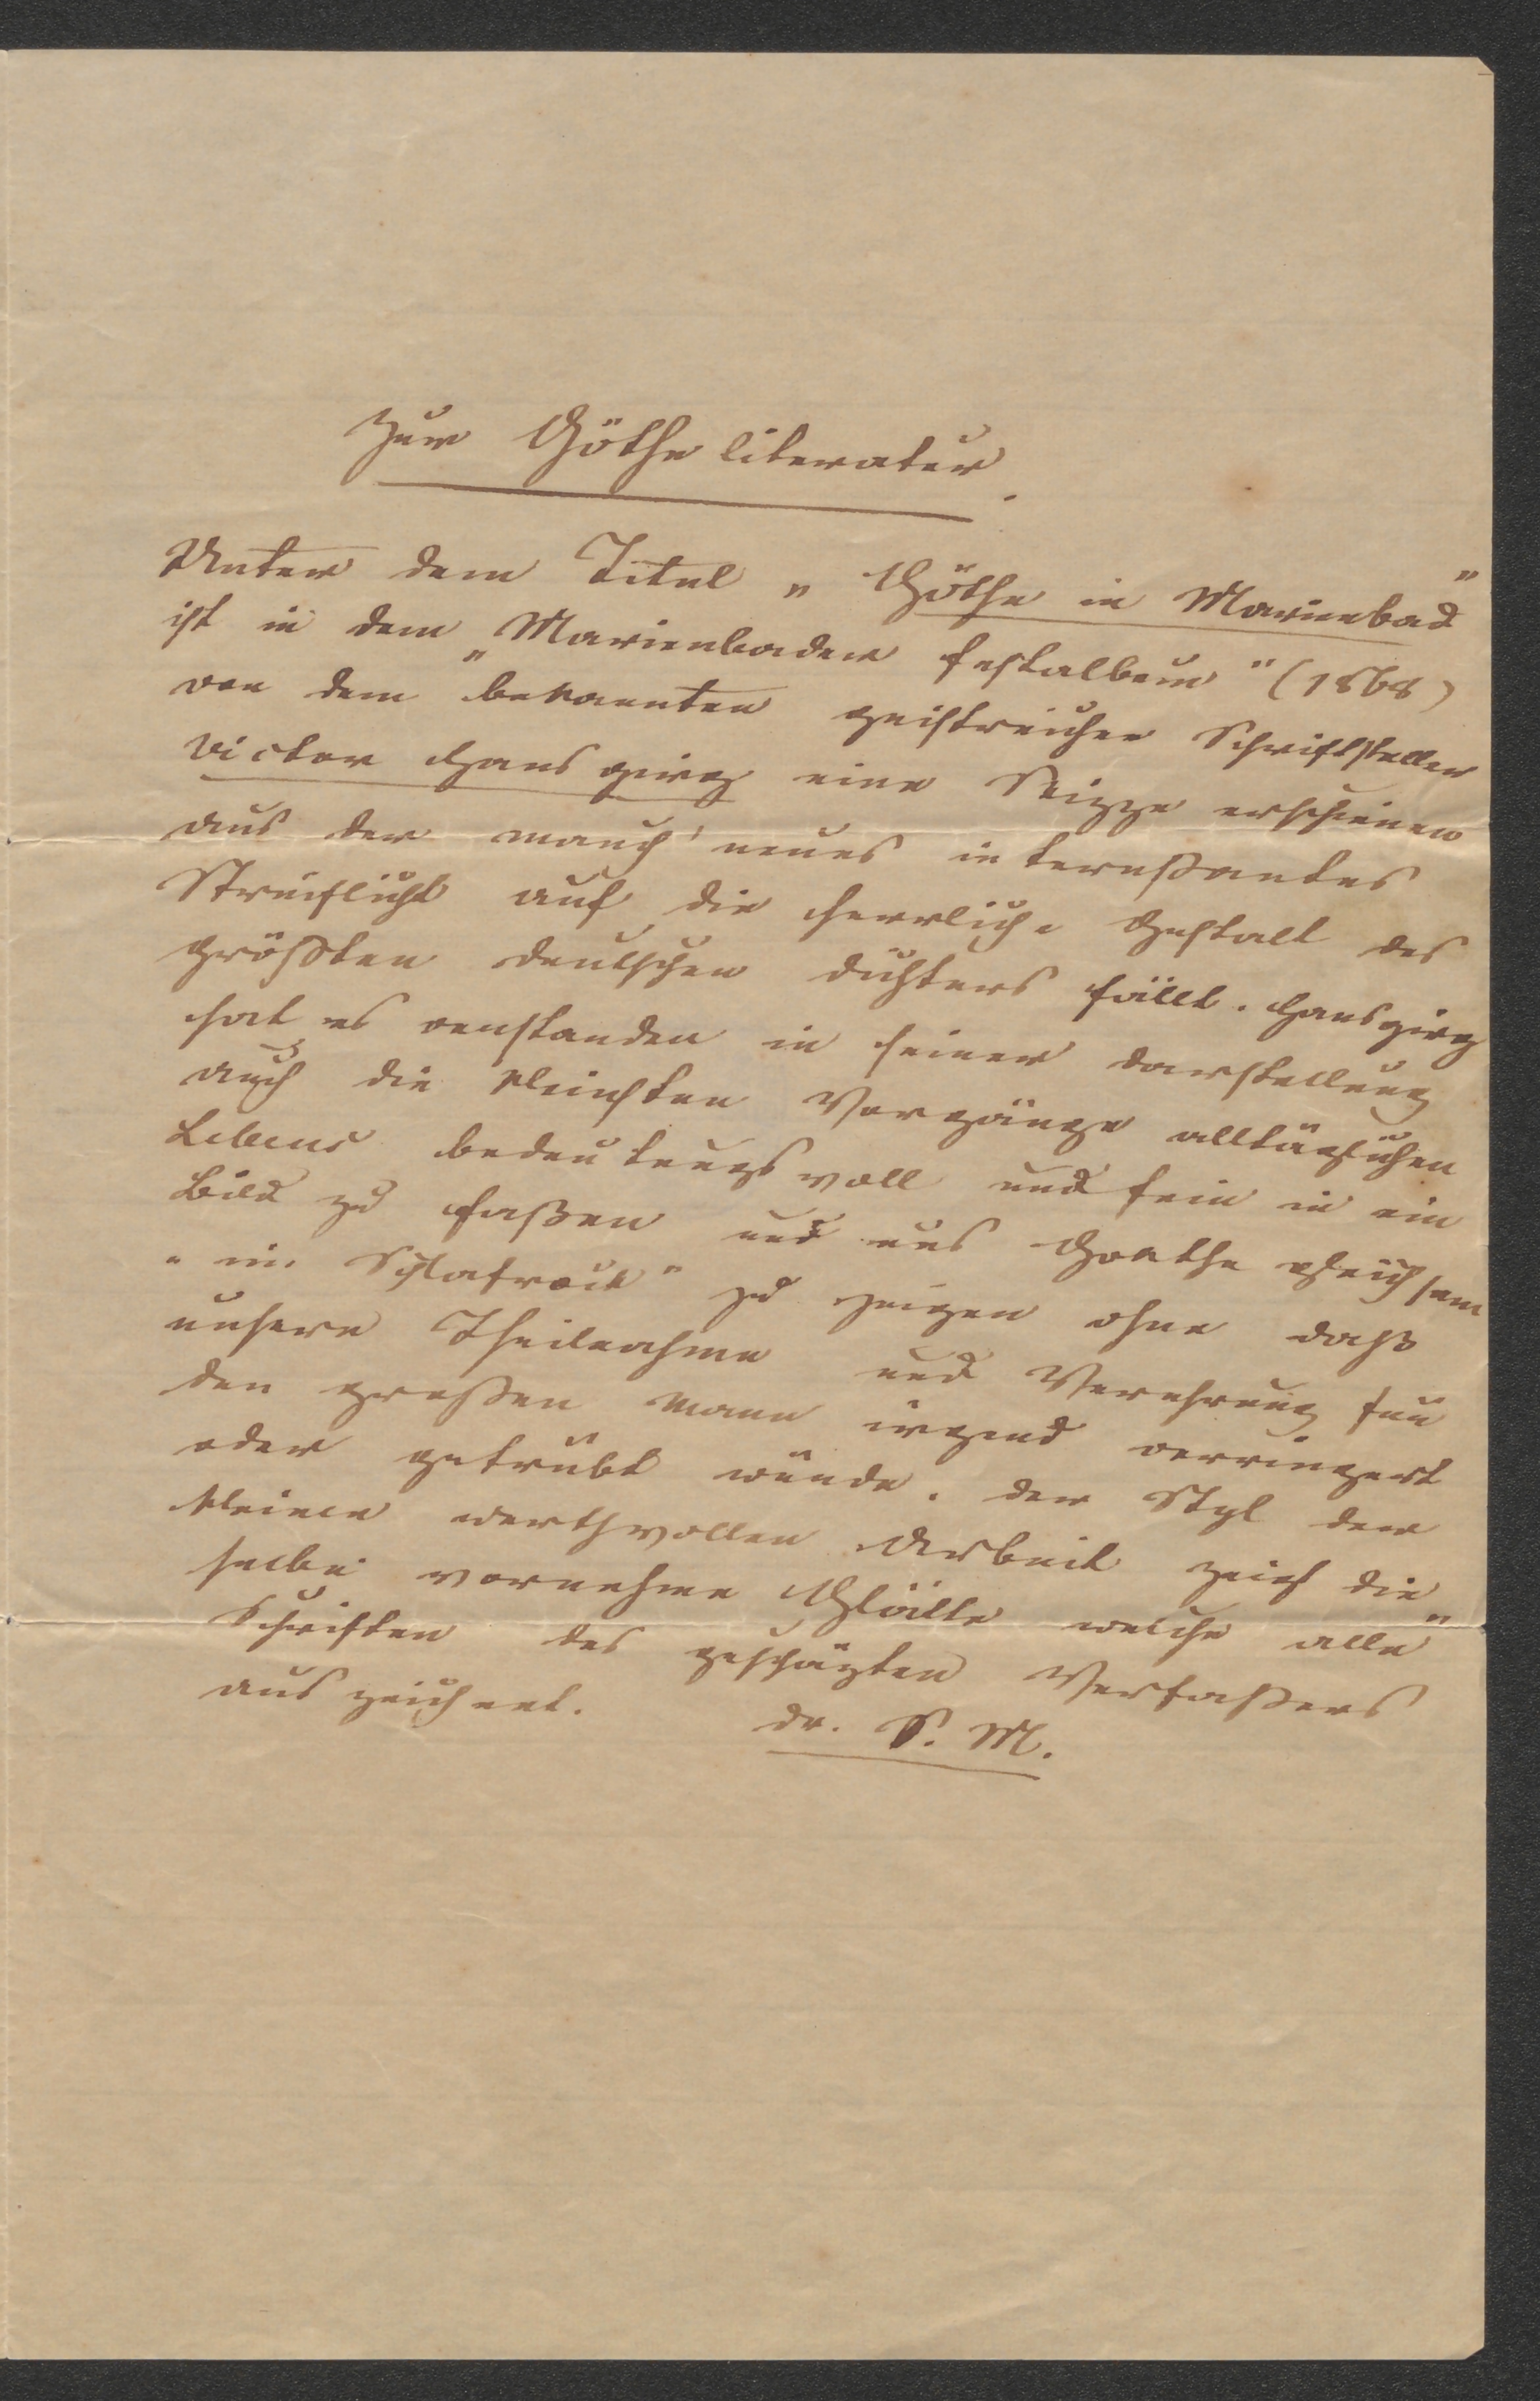 Zur Göthe literatur.
Unter dem Titel „Göthe in Marienbad"
ist in dem „Marienbader Festalbum" (1868)
von dem bekannten geistreichen Schriftsteller
Victor Hansgirg eine Skizze erschienen
aus der manch' neues interessantes
Streiflicht auf die herrliche Gestalt des
größten deutschen Dichters fällt. Hansgirg
hat es verstanden in seiner Darstellung
auch die kleinsten Vorgänge alltäglichen
Lebens bedeutungsvoll und fein in ein
Bild zu faßen und uns Goethe gleichsam
„im Schlafrock" zu zeigen ohne daß
unsere Theilnahme und Verehrung für
den großen Mann irgend verringert
oder getrübt würde. Der Styl der
kleinen werthvollen Arbeit zeigt die
selbe vornehme Glätte welche alle
Schriften des geschäzten Verfaßers
auszeichnet.
Dr. S. M.